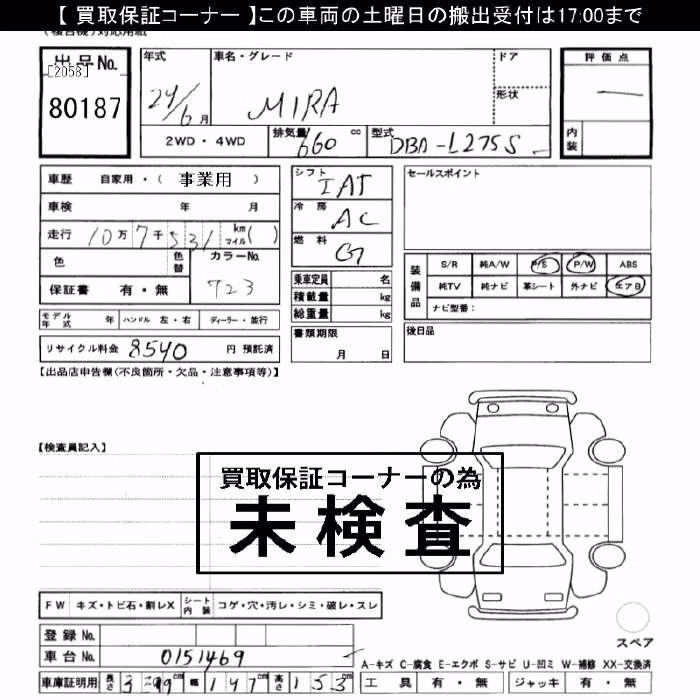 【 買取保証コーナー 】この車両の土曜日の搬出受付は17:00まで
出品No.
[2058]
80187
年式
24/6月
車名・グレード
MIRA
ドア
形状
評価点
内装
2WD・4WD
排気量 660 cc
型式 DBA-L275S
車歴 自家用・( 事業用 )
車検 年 月
走行 10万7千531 km マイル( )
色
色替
カラーNo.
723
保証書 有・無
モデル年式 年 ハンドル 左・右 ディーラー・並行
リサイクル料金 8540 円 預託済
シフト IAT
冷房 AC
燃料 G
乗車定員 名
積載量 kg
総重量 kg
書類期限
月 日
セールスポイント
装備品
S/R 純A/W P/S P/W ABS
純TV 純ナビ 革シート 外ナビ エアB
ナビ型番:
後日品
【出品店申告欄(不良箇所・欠品・注意事項等)】
【検査員記入】
買取保証コーナーの為
未検査
FW キズ・トビ石・割レX シート内装 コゲ・穴・汚レ・シミ・破レ・スレ
登録No.
車台No. 0151469
車庫証明用 長さ 339cm 幅 147cm 高さ 153cm
スペア
A-キズ C-腐食 E-エクボ S-サビ U-凹ミ W-補修 XX-交換済
工具 有・無 ジャッキ 有・無